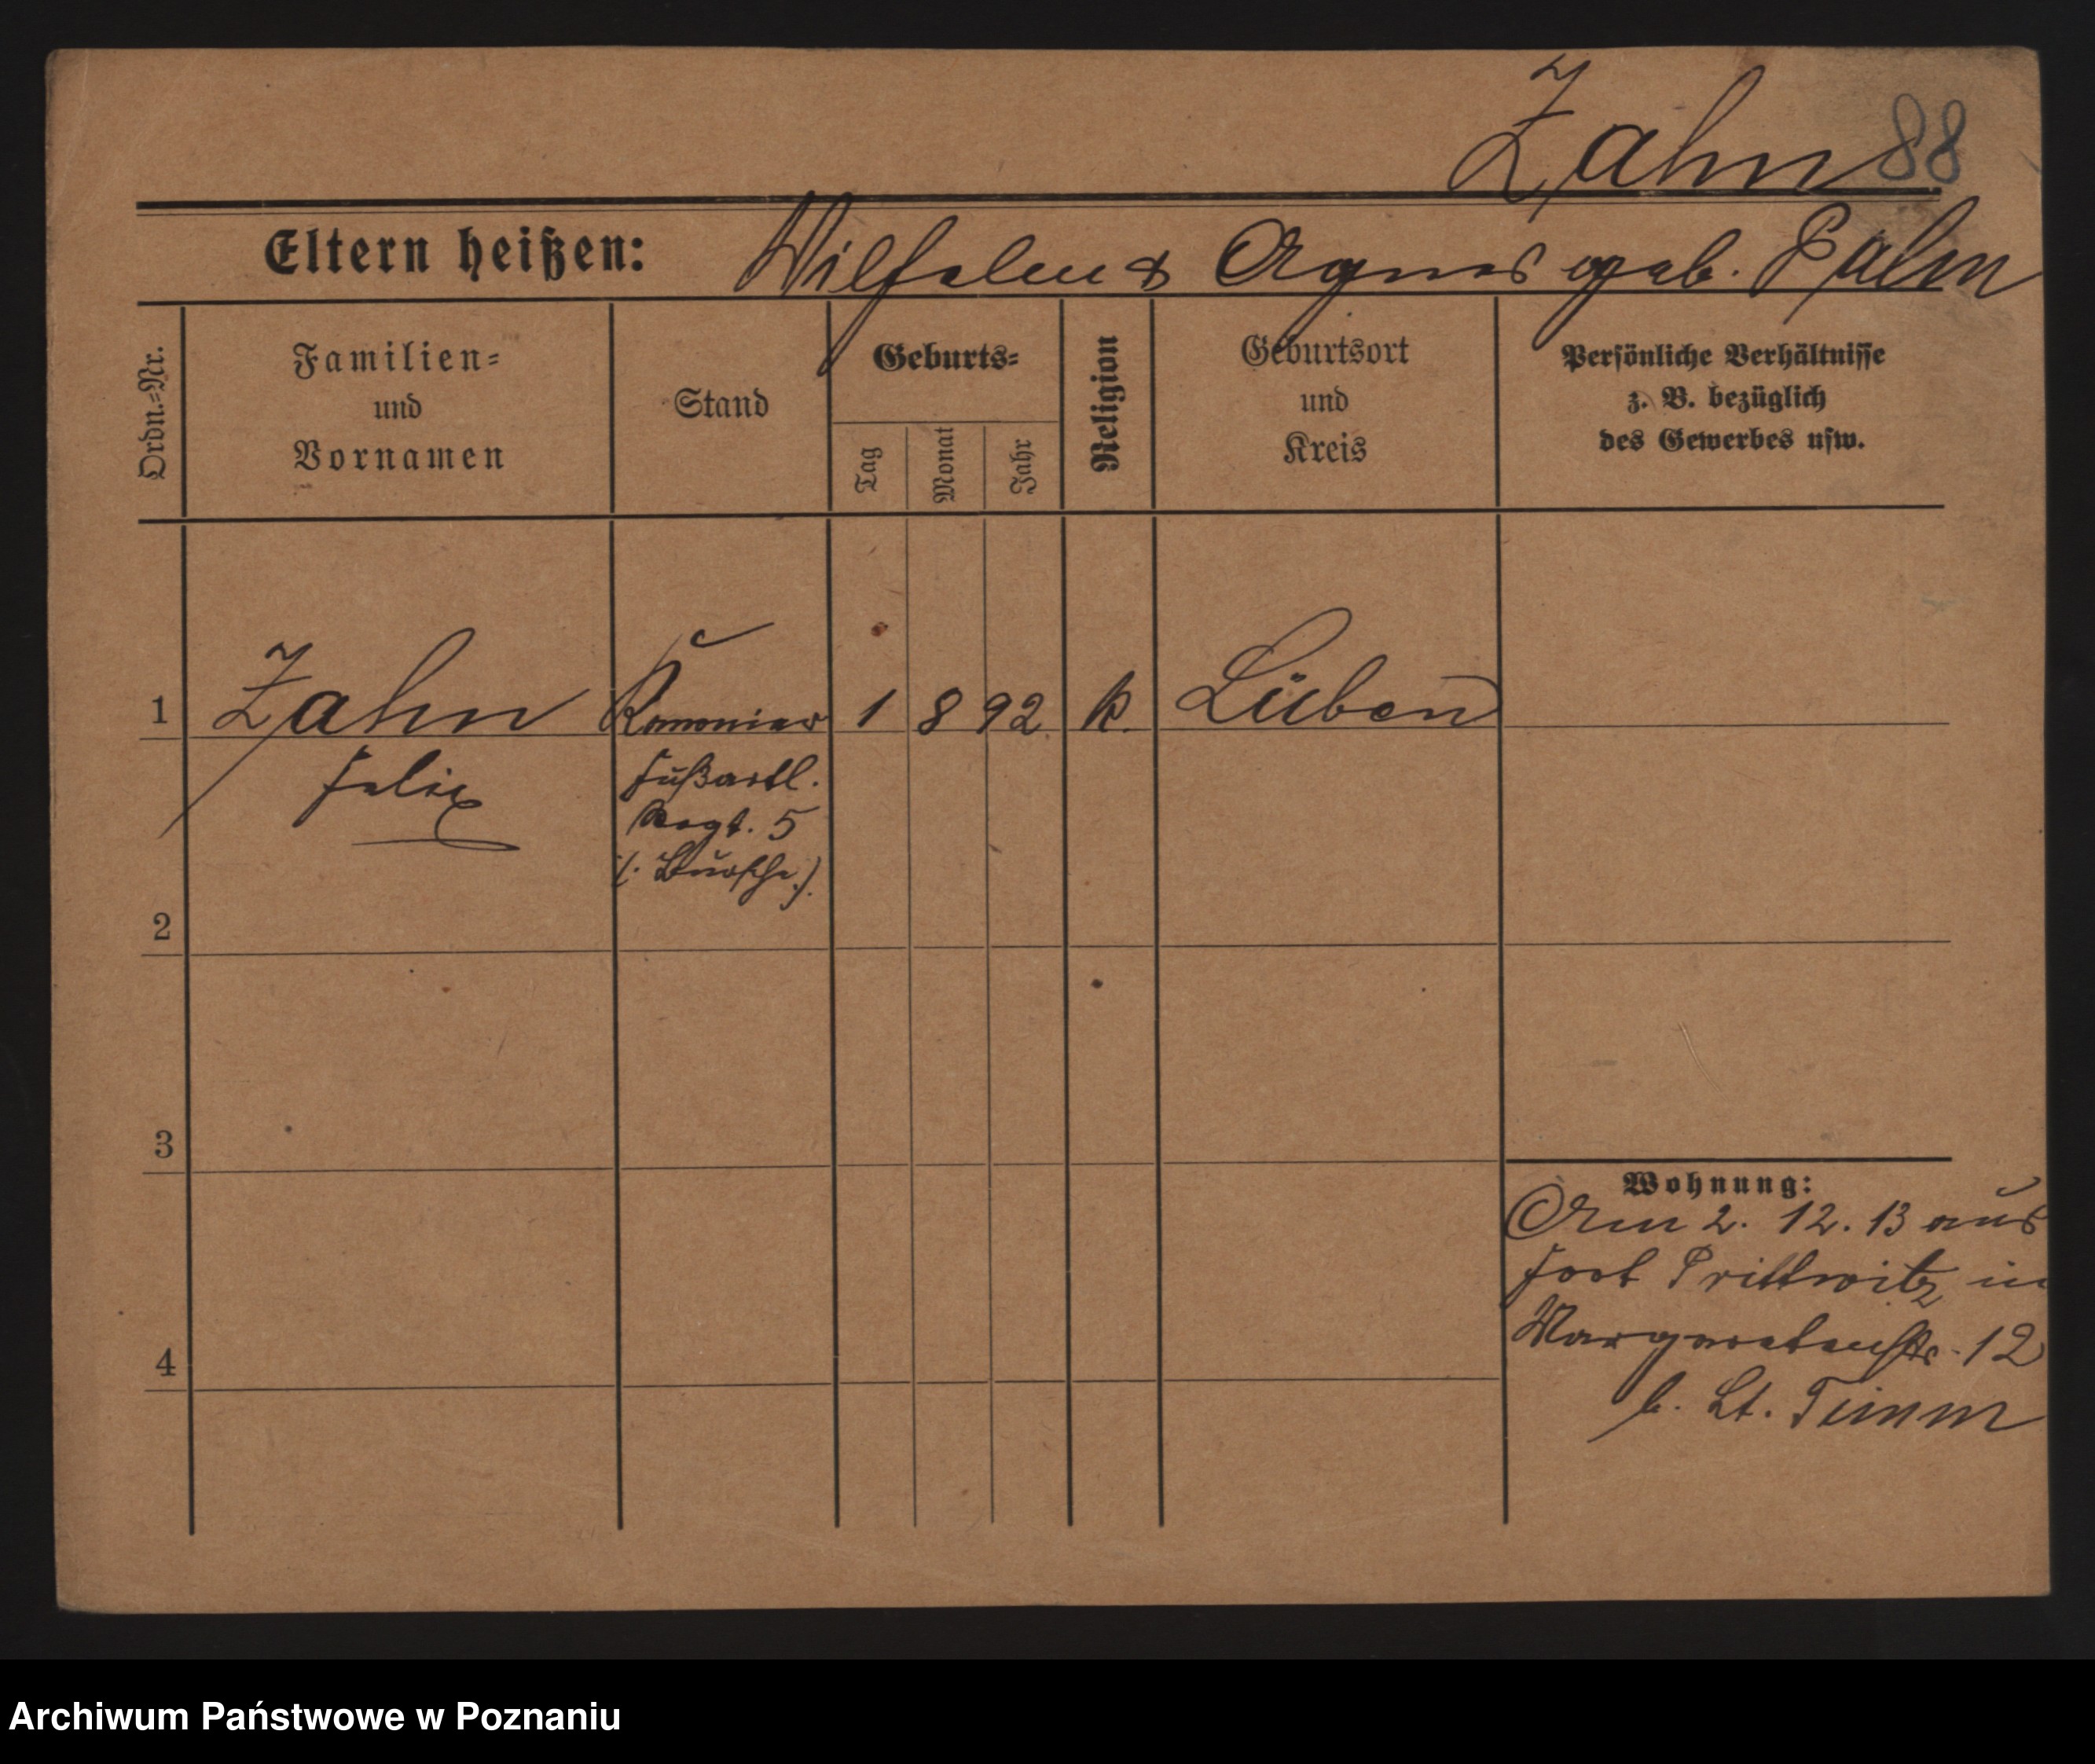 Zahn 88
Eltern heißen: Wilhelm & Agnes geb. Palm
Ordn.=Nr.
Familien=
und
Vornamen
Stand
Geburts=
Tag
Monat
Jahr
Religion
Geburtsort
und
Kreis
Persönliche Verhältnisse
z. B. bezüglich
des Gewerbes usw.
1 Zahn Kanonier 1 8 92 k. Lüben
Felix Fußartl.
Regt. 5
(: Bursche :)
2
3
4
Wohnung:
Am 2. 12. 13 aus
Fort Prittwitz in
Margaretenstr. 12
b. Lt. Timm
Archiwum Państwowe w Poznaniu